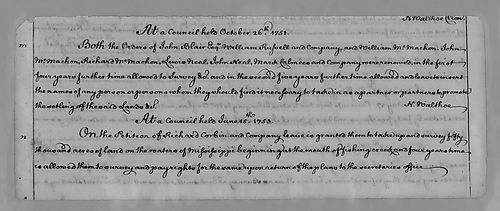 N. Walthoe Cl. Con.
At a Council held October 26th 1751.
Both the Orders of John Blair Esqr. William Russell and Company, and William Mc Machon, John
Mc Machon, Richard Mc Machon, Lewis Neal, John Neal, Mark Calmees and Company were renewed, in the first
four years further time allowed to Survey &c. and in the second five years further time allowed and leave to insert
the names of any person or persons when they should find it necessary to take in as a partner or partners to promote
the settling of the said Lands &c.
N. Walthoe
At a Council held June 15th 1753.
On the Petition of Richard Corbin and Company leave is granted them to take up and survey fifty
thousand acres of land on the waters of Mississippi beginning at the mouth of fishing creek and four years time
is allowed them to survey and pay rights for the same upon return of the plans to the secretaries office